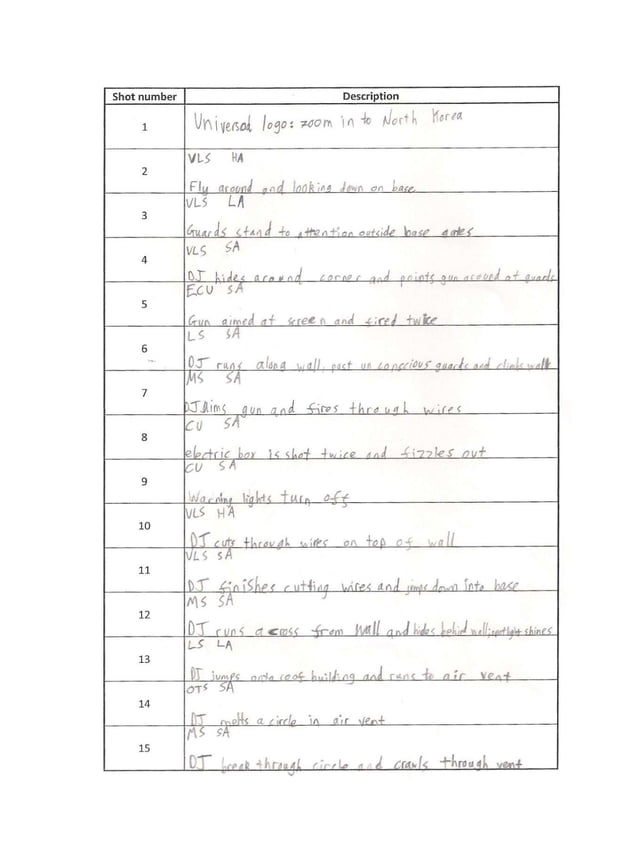 Shot number Description
1 Universal logo: zoom in to North Korea
VLS HA
2 Fly around and looking down on base
VLS LA
3 Guards stand to attention outside base gates
VLS SA
4 DJ hides around corner and points gun around at guards
ECU SA
5 Gun aimed at screen and fired twice
LS SA
6 DJ runs along wall, past unconscious guards and climbs wall
MS SA
7 DJ Aims gun and fires through wires
CU SA
8 electric box is shot twice and fizzles out
CU SA
9 Warning lights turn off
VLS HA
10 DJ cuts through wires on top of wall
VLS SA
11 DJ finishes cutting wires and jumps down into base
MS SA
12 DJ runs across from wall and hides behind wall; spotlight shines
LS LA
13 DJ jumps onto roof building and runs to air vent
OTS SA
14 DJ melts a circle in air vent
MS SA
15 DJ break through circle and crawls through vent